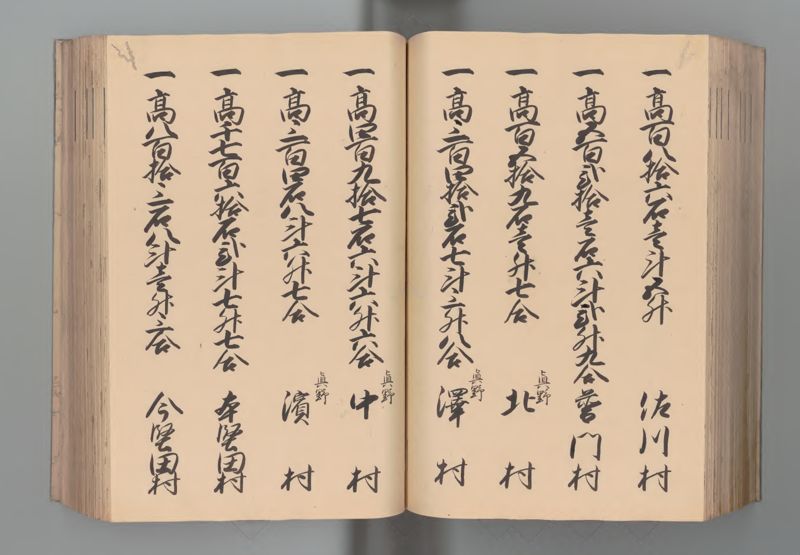 一高百八拾六石壱斗五升 佐川村
一高五百弐拾壱石六斗弐升九合 普門村
一高百五拾九石壱升七合 眞野北村
一高三百四拾弐石七斗三升八合 眞野澤村
一高四百九拾七石六斗六升六合 眞野中村
一高三百四石八斗六升七合 眞野濱村
一高千七百六拾石弐斗七升七合 本堅田村
一高八百拾三石八斗壱升三合 今堅田村